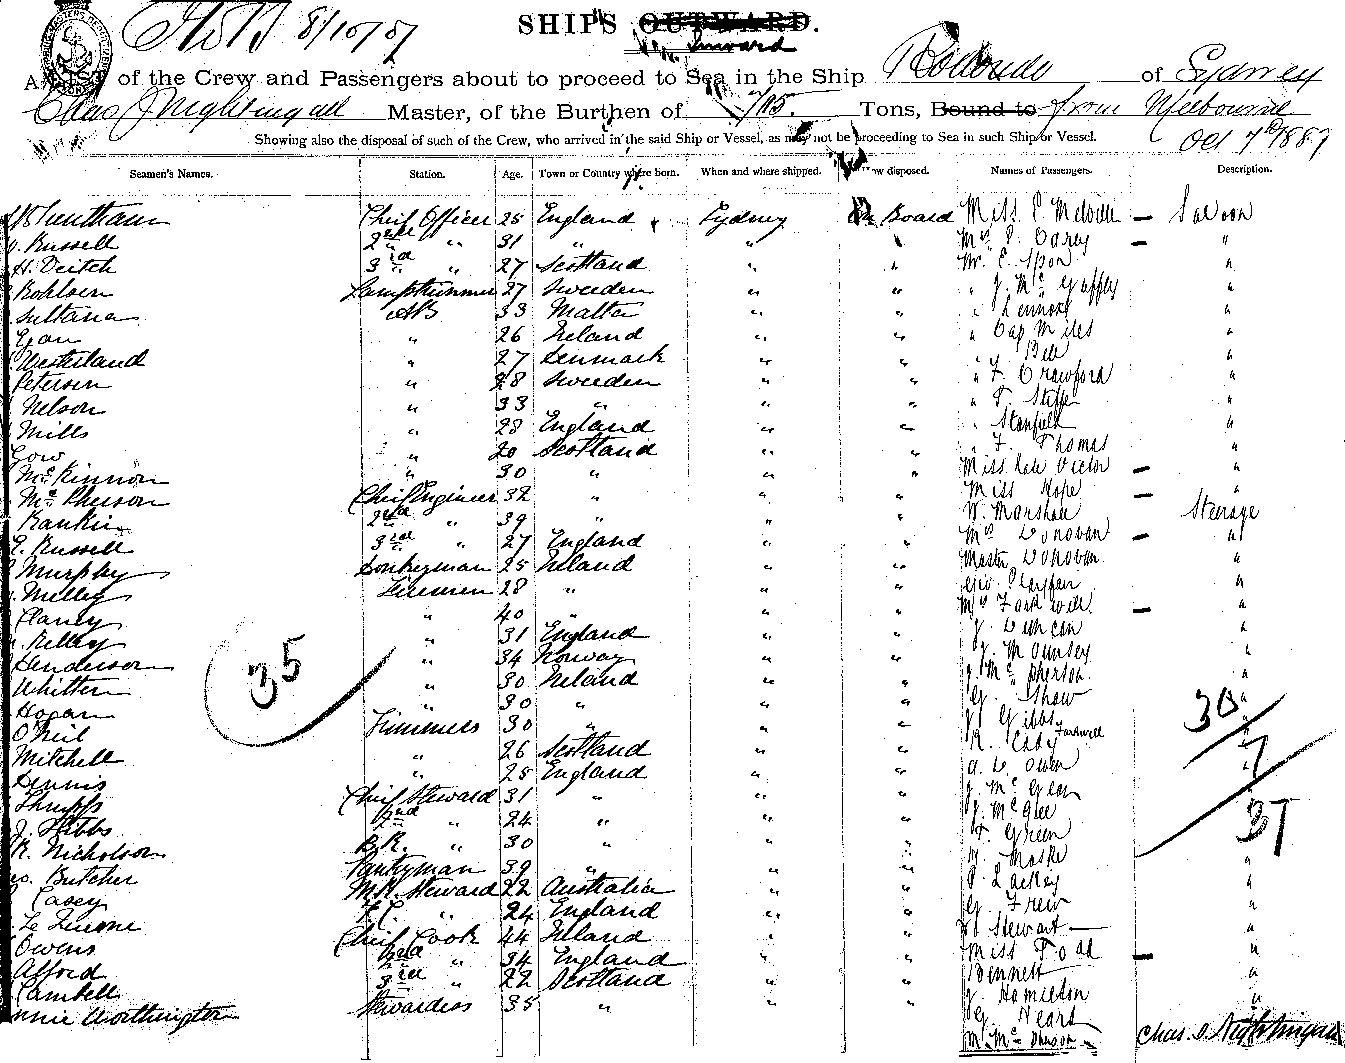 8/10/87
SHIPS OUTWARD.
Inward
A LIST of the Crew and Passengers about to proceed to Sea in the Ship Rodondo of Sydney
Chas J Nightingall Master, of the Burthen of 705. Tons, Bound to from Melbourne
Showing also the disposal of such of the Crew, who arrived in the said Ship or Vessel, as may not be proceeding to Sea in such Ship or Vessel. Oct 7th 1887
Seamen's Names. Station. Age. Town or Country where born. When and where shipped. How disposed. Names of Passengers. Description.
Chief Officer 25 England Sydney On Board Miss E Melville — Saloon
Russell 2nd " 31 " " " Mrs P. Carey — "
H. Veitch 3rd " 27 Scotland " " Mr E. "
Lamptrimmer 27 Sweden " " " J. Mc "
Sultana AB 33 Malta " " " "
Egan " 26 Ireland " " " Cap Miles "
Westerland " 27 Denmark " " " "
Petersen " 28 Sweden " " " F. Crawford "
Nelson " 33 " " " " "
Mills " 28 England " " " Stanfield "
Gow " 20 Scotland " " " F. Thomas "
McKinnon " 30 " " " Miss Kate Victor — "
McPherson Chief Engineer 32 " " " Miss Hope — "
Rankin 2nd " 39 " " " W. Marshall Steerage
Russell 3rd " 27 England " " Mrs Donovan — "
Murphy Donkeyman 25 Ireland " " Master Donovan "
Firemen 28 " " " "
Clancy " 40 " " " Mrs — "
Kelley " 31 England " " J. Duncan "
Henderson " 34 Norway " " J. Mounsey "
Whitten " 30 Ireland " " J. McPherson "
Hogan " 30 " " " G. Shaw "
O'Neil Trimmers 30 " " " J. Gibbs "
Mitchell " 26 Scotland " " R. Cady "
Dennis " 25 England " " A. D. Owen "
Chief Steward 31 " " " J. Mc "
J. 2nd " 24 " " " J. McGee "
R. Nicholson B.R. " 30 " " " Green "
Butcher Pantryman 39 " " " "
Casey M.R. Steward 22 Australia " " P. Lackey "
F.C. " 24 England " " G. Frew "
Owens Chief Cook 44 Ireland " " Stewart "
Alford 2nd " 34 England " " Miss Todd — "
Cambell 3rd " 22 Scotland " " Bennett "
Worthington Stewardess 35 " " " J. Hamilton "
G. Heard
35
30
7
37
Chas. J. Nightingall